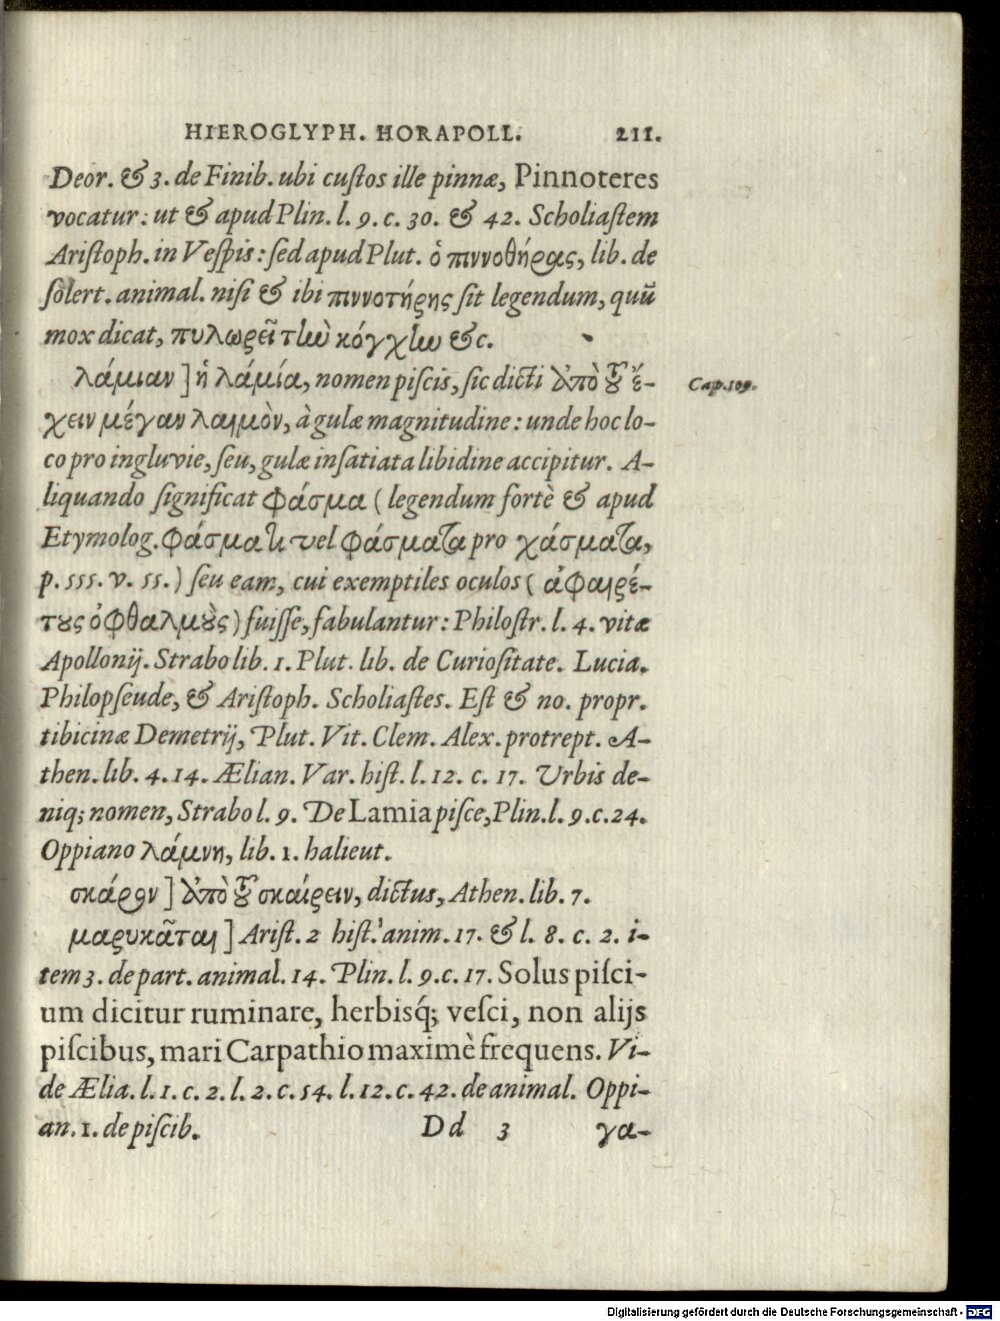 HIEROGLYPH. HORAPOLL. 211.
Deor. & 3. de Finib. ubi custos ille pinnæ, Pinnoteres
vocatur: ut & apud Plin. l. 9. c. 30. & 42. Scholiastem
Aristoph. in Vespis: sed apud Plut. ὁ πιννοθήρας, lib. de
solert. animal. nisi & ibi πιννοτήρης sit legendum, quũ
mox dicat, πυλωρεῖ τὼ κόγχω &c.
λάμιαν] ἡ λάμία, nomen piscis, sic dicti ἀπὸ τοῦ ἔ-
χειν μέγαν λαιμὸν, à gulæ magnitudine: unde hoc lo-
co pro ingluvie, seu, gulæ insatiata libidine accipitur. A-
liquando significat φάσμα (legendum fortè & apud
Etymolog. φάσματι vel φάσματα pro χάσματα,
p. 555. v. 55.) seu eam, cui exemptiles oculos (ἀφαιρέ-
τους ὀφθαλμοὺς) fuisse, fabulantur: Philostr. l. 4. vitæ
Apollonij. Strabo lib. 1. Plut. lib. de Curiositate. Lucia.
Philopseude, & Aristoph. Scholiastes. Est & no. propr.
tibicinæ Demetrij, Plut. Vit. Clem. Alex. protrept. A-
then. lib. 4. 14. Ælian. Var. hist. l. 12. c. 17. Urbis de-
niq; nomen, Strabo l. 9. De Lamia pisce, Plin. l. 9. c. 24.
Oppiano λάμνη, lib. 1. halieut.
σκάρον] ἀπὸ τοῦ σκαίρειν, dictus, Athen. lib. 7.
μαρυκᾶται] Arist. 2 hist. anim. 17. & l. 8. c. 2. i-
tem 3. de part. animal. 14. Plin. l. 9. c. 17. Solus pisci-
um dicitur ruminare, herbisq́; vesci, non alijs
piscibus, mari Carpathio maximè frequens. Vi-
de Ælia. l. 1. c. 2. l. 2. c. 54. l. 12. c. 42. de animal. Oppi-
an. 1. de piscib.
Dd 3 γα-
Cap. 109.
Digitalisierung gefördert durch die Deutsche Forschungsgemeinschaft - DFG